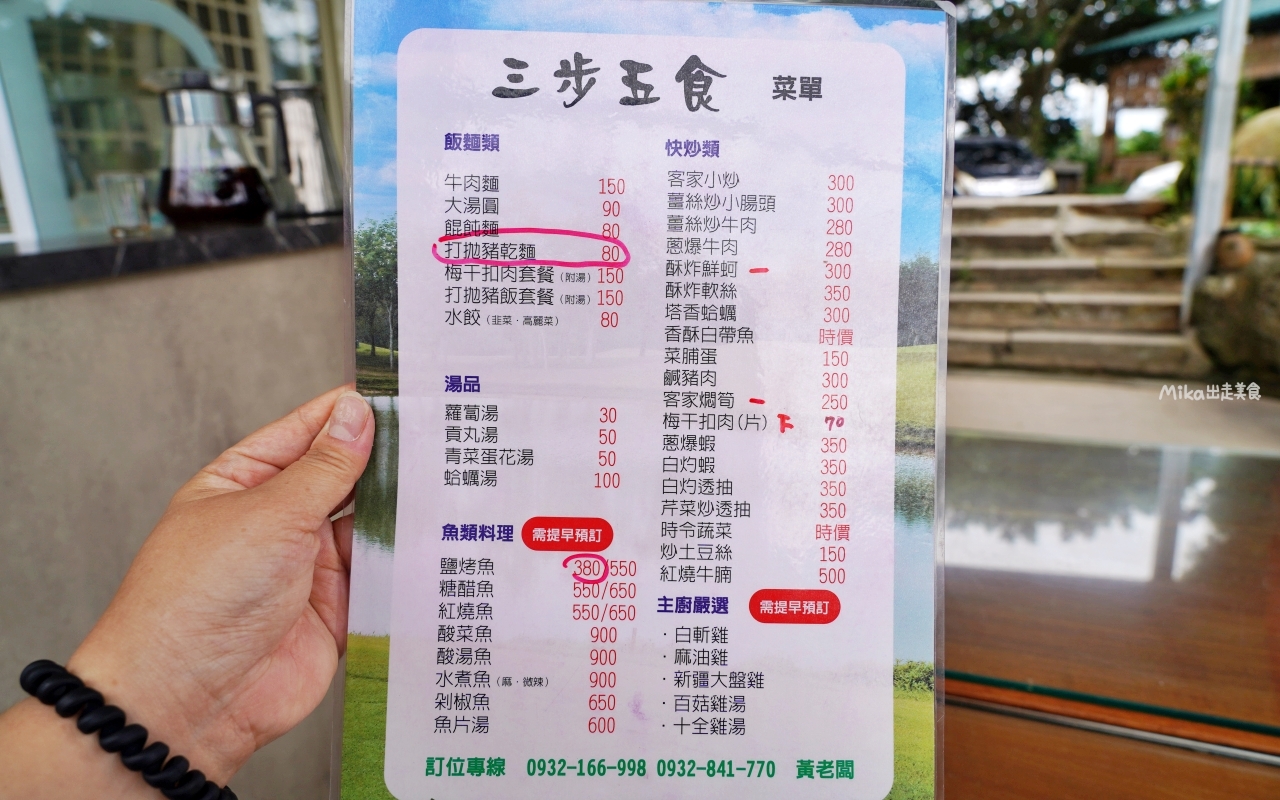 三步五食 菜單
飯麵類
牛肉麵 150
大湯圓 90
餛飩麵 80
打拋豬乾麵 80
梅干扣肉套餐(附湯) 150
打拋豬飯套餐(附湯) 150
水餃(韭菜·高麗菜) 80
湯品
蘿蔔湯 30
貢丸湯 50
青菜蛋花湯 50
蛤蠣湯 100
魚類料理 需提早預訂
鹽烤魚 380/550
糖醋魚 550/650
紅燒魚 550/650
酸菜魚 900
酸湯魚 900
水煮魚(麻·微辣) 900
剁椒魚 650
魚片湯 600
快炒類
客家小炒 300
薑絲炒小腸頭 300
薑絲炒牛肉 280
蔥爆牛肉 280
酥炸鮮蚵 300
酥炸軟絲 350
塔香蛤蠣 300
香酥白帶魚 時價
菜脯蛋 150
鹹豬肉 300
客家燜筍 250
梅干扣肉(片) 下 70
蔥爆蝦 350
白灼蝦 350
白灼透抽 350
芹菜炒透抽 350
時令蔬菜 時價
炒土豆絲 150
紅燒牛腩 500
主廚嚴選 需提早預訂
·白斬雞
·麻油雞
·新疆大盤雞
·百菇雞湯
·十全雞湯
訂位專線 0932-166-998 0932-841-770 黃老闆
Mika出走美食